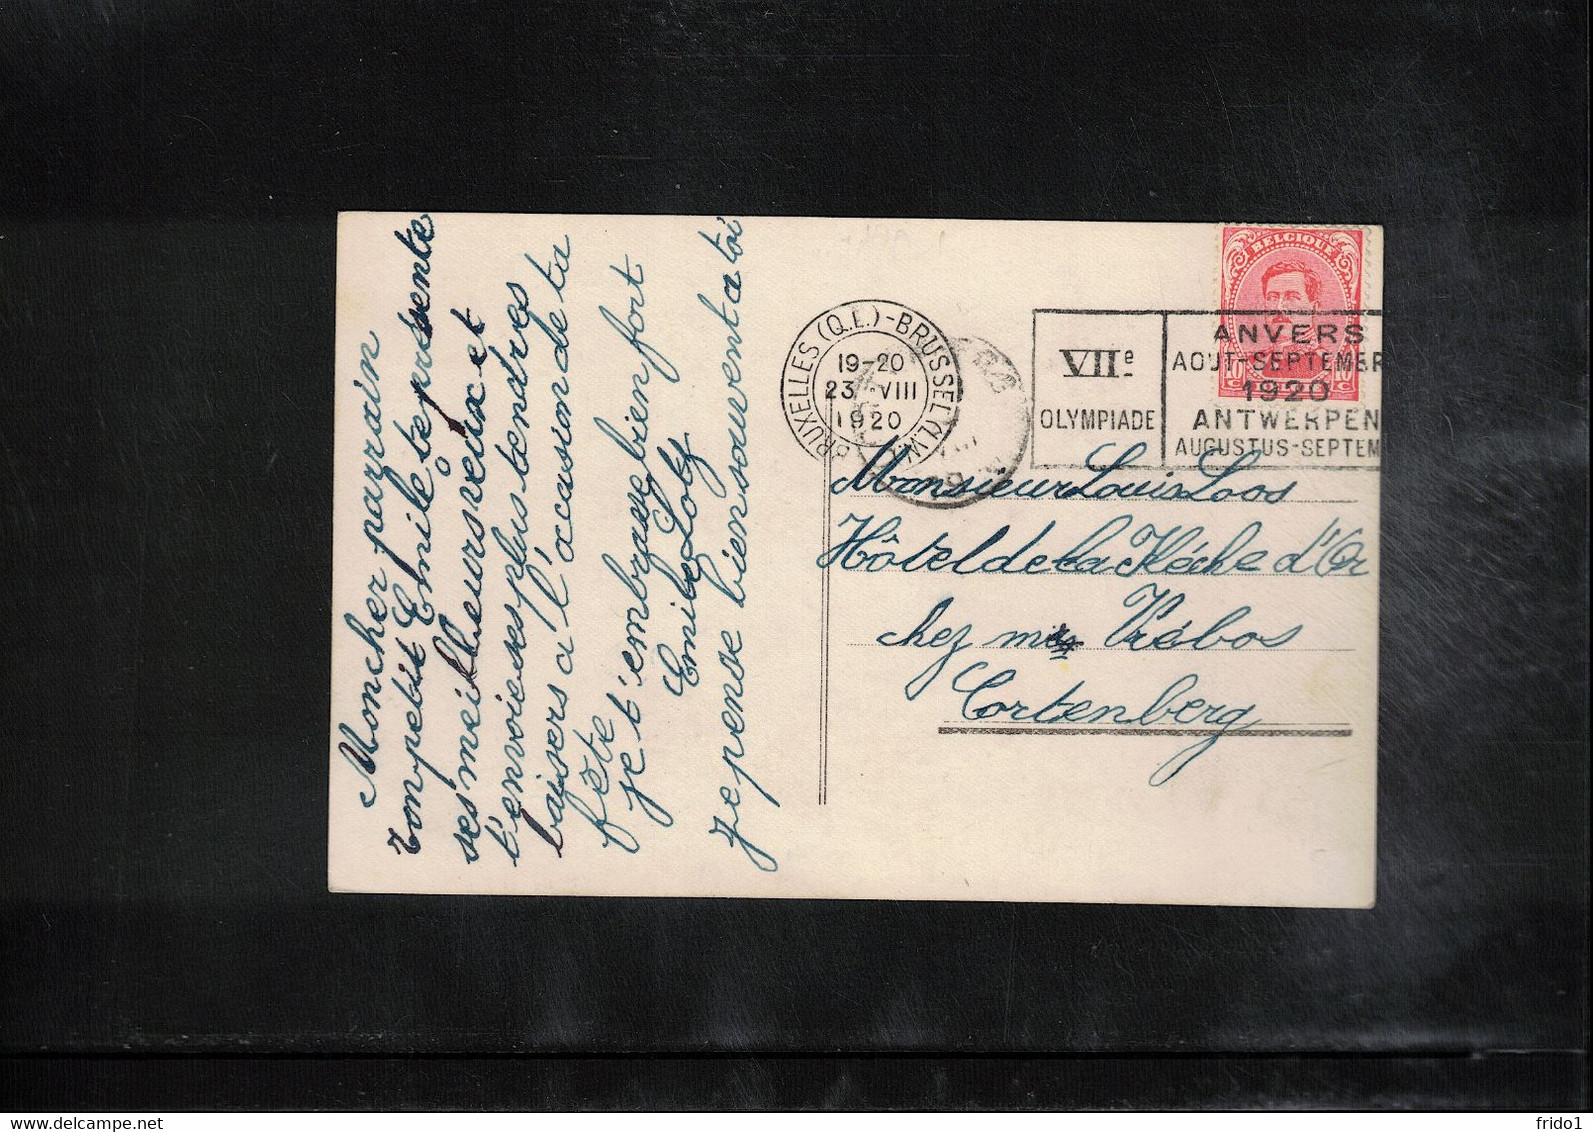 Mon cher parrain
ton petit Emile te présente
ses meilleurs vœux et
t'envoie ses plus tendres
baisers a l'occasion de ta
fête
je t'embrasse bien fort
Emile
je pense bien souvent a toi
BRUXELLES (Q.L.) - BRUSSEL (L.W.)
19-20
23 VIII
1920
VIIe
OLYMPIADE
ANVERS
AOUT-SEPTEMBR
1920
ANTWERPEN
AUGUSTUS-SEPTEM
BELGIQUE
10 C
Monsieur Louis Loos
Hôtel de la d'Or
chez Prébos
Cortenberg
delcampe.net
frido1